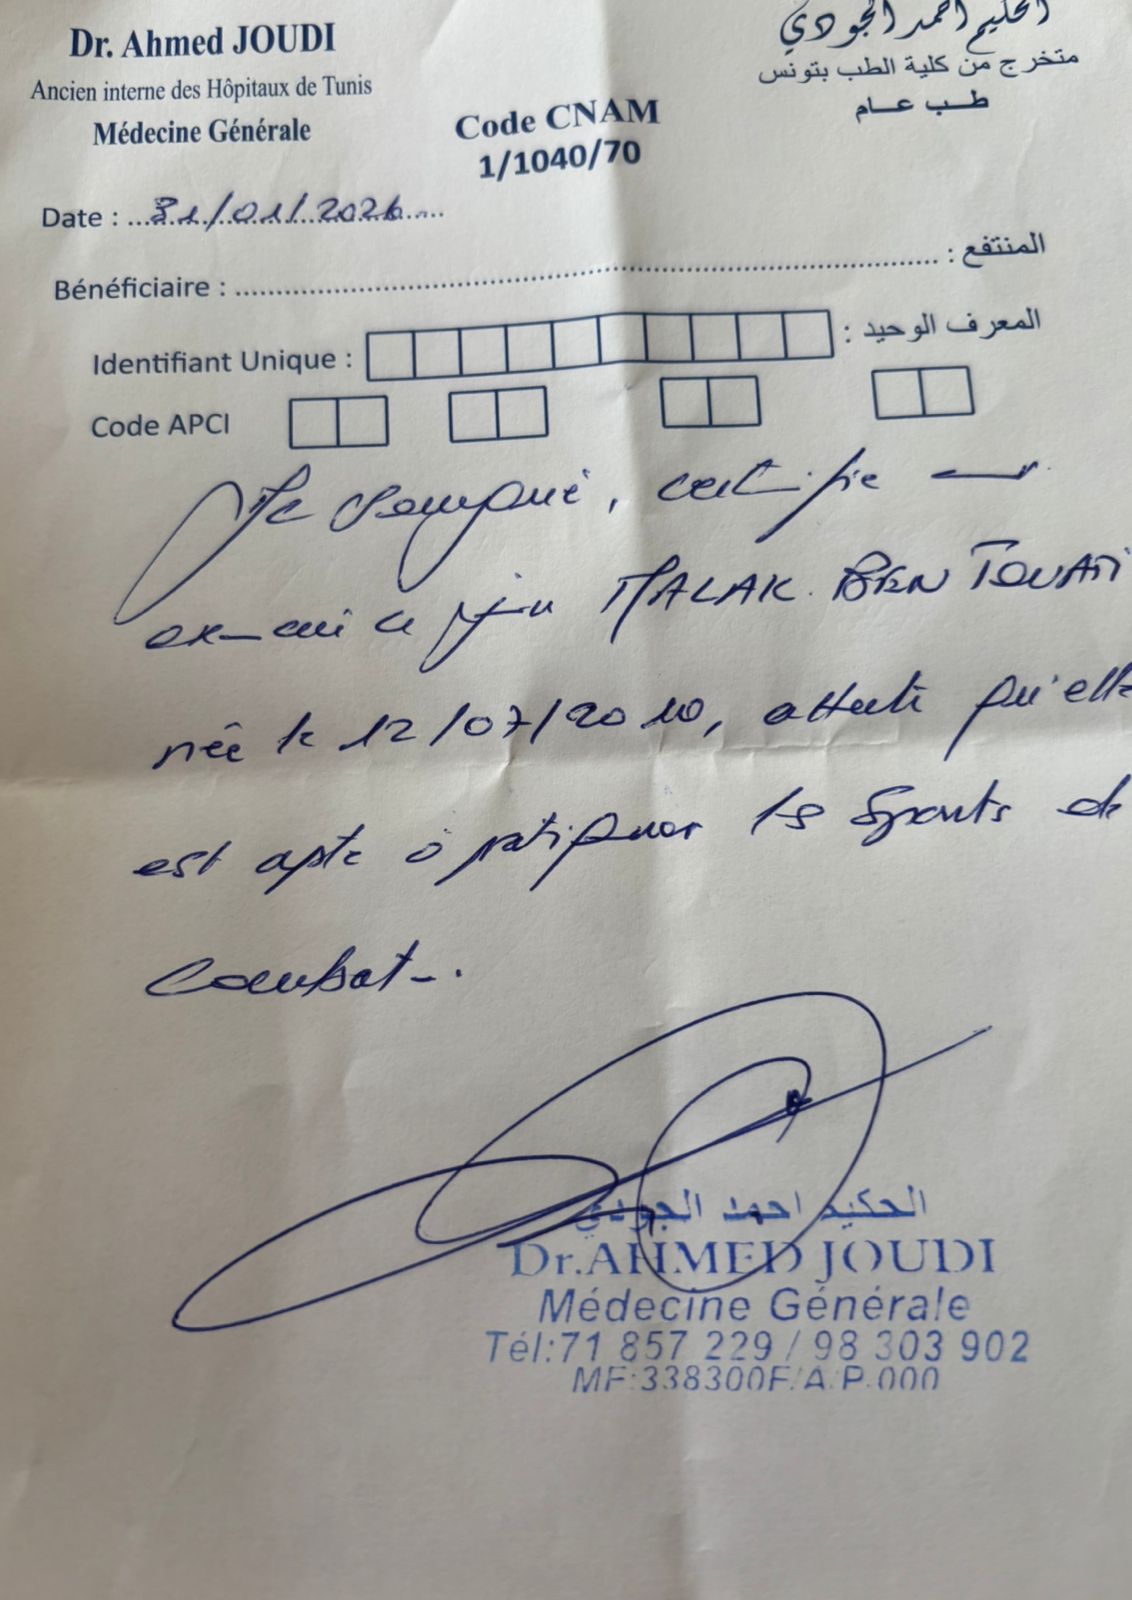 Dr. Ahmed JOUDI
Ancien interne des Hôpitaux de Tunis
Médecine Générale
الحكيم أحمد الجودي
متخرج من كلية الطب بتونس
طب عام
Code CNAM
1/1040/70
Date : 31/01/2026
Bénéficiaire : المنتفع :
Identifiant Unique : المعرف الوحيد :
Code APCI
Je soussigné, certifie avoir
examiné ce jour MALAK BEN TOUATI
née le 12/07/2010, atteste qu'elle
est apte à pratiquer les sports de
combat.
الحكيم احمد الجودي
Dr.AHMED JOUDI
Médecine Générale
Tél:71 857 229 / 98 303 902
MF:338300F/A/P.000